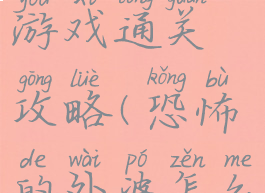 yóu xì tōng guān
游戏通关
gōng lüè kǒng bù
攻略(恐怖
de wài pó zěn me
的外婆怎么